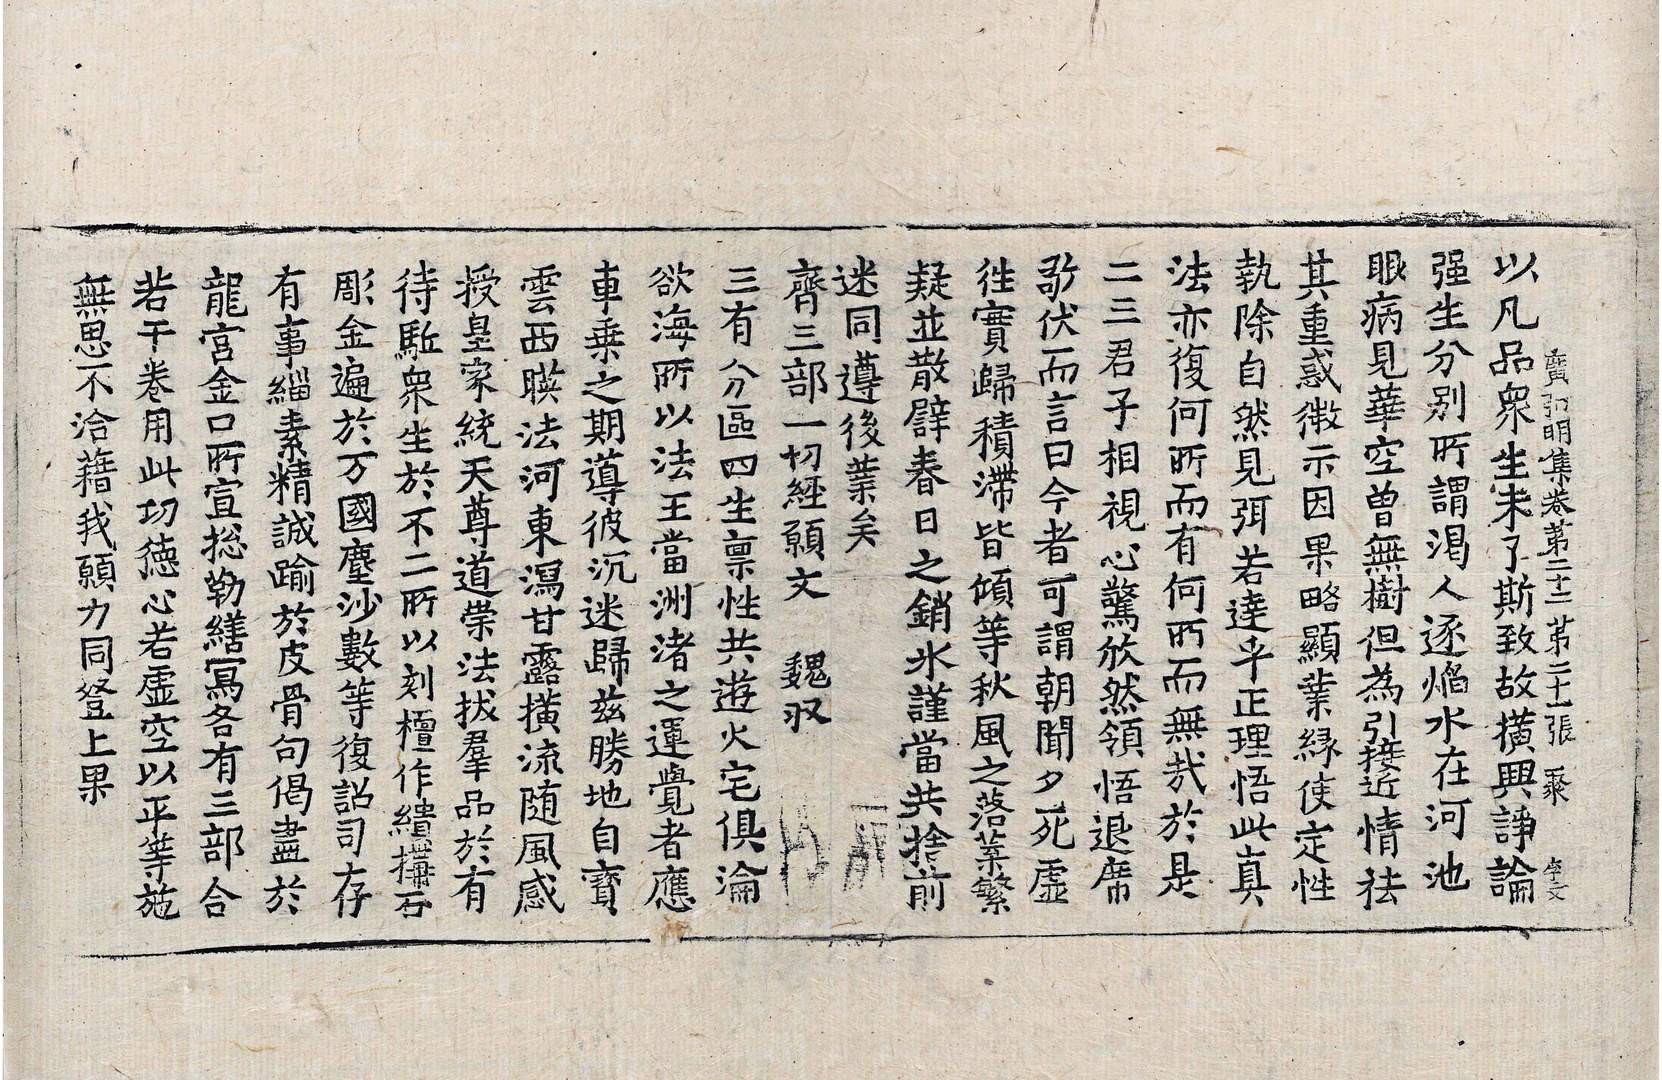 以凡品衆生未了斯致故撗興諍論
廣弘明集卷第二十二 第二十一張 聚
强生分别所謂渴人逐焰水在河池
眼病見華空曽無樹但為引接近情袪
其重惑微示因果略顯業緣使定性
執除自然見弭若達乎正理悟此真
法亦復何所而有何所而無㢤於是
二三君子相視心驚欣然領悟退席
敬伏而言曰今者可謂朝聞夕死虛
徃實歸積滯皆傾等秋風之落葉繁
疑並散譬春日之銷氷謹當共捨前
迷同遵後業矣
齊三部一切經願文 魏収
三有分區四生禀性共遊火宅俱淪
欲海所以法王當洲渚之運覺者應
車乗之期導彼沉迷歸兹勝地自寶
雲西暎法河東瀉甘露撗流随風感
授皇家統天尊道崇法拔羣品於有
待駈衆生於不二所以刻檀作繢搆石
彫金遍於万國塵沙數等復詔司存
有事緇素精誠踰於皮骨句偈盡於
龍宮金口所宣揔勒繕寫各有三部合
若干卷用此功德心若虛空以平等施
無思不洽藉我願力同登上果